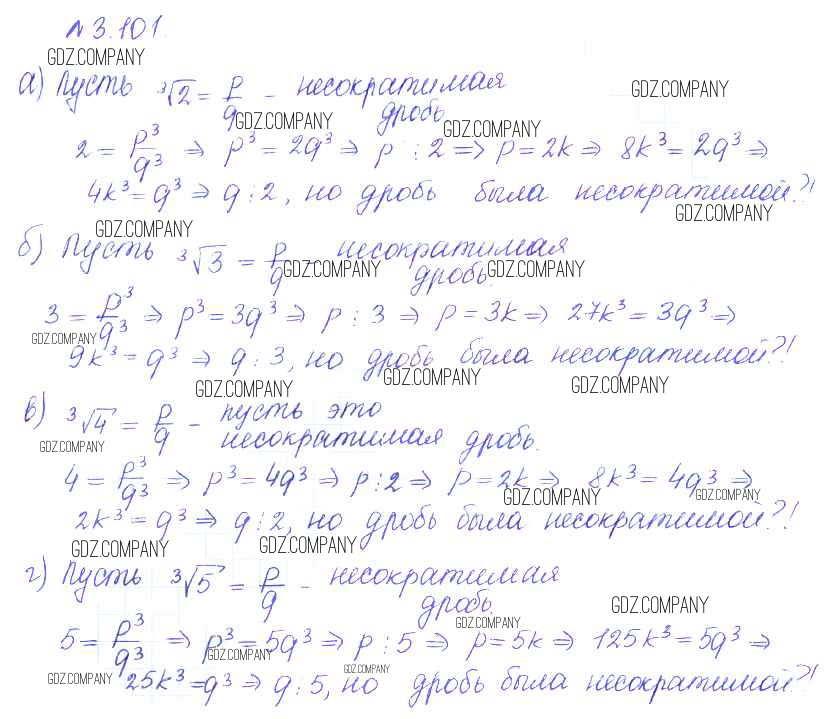 №3.101.
GDZ.COMPANY
а) Пусть ∛2 = p/q - несократимая
GDZ.COMPANY
GDZ.COMPANY дробь
GDZ.COMPANY
2 = p³/q³ ⇒ p³ = 2q³ ⇒ p ⋮ 2 ⇒ p = 2k ⇒ 8k³ = 2q³ ⇒
4k³ = q³ ⇒ q ⋮ 2, но дробь была несократимой?!
GDZ.COMPANY
GDZ.COMPANY
б) Пусть ∛3 = p/q - несократимая
GDZ.COMPANY дробь. GDZ.COMPANY
3 = p³/q³ ⇒ p³ = 3q³ ⇒ p ⋮ 3 ⇒ p = 3k ⇒ 27k³ = 3q³ ⇒
GDZ.COMPANY
9k³ = q³ ⇒ q ⋮ 3, но дробь была несократимой?!
GDZ.COMPANY GDZ.COMPANY GDZ.COMPANY
в) ∛4 = p/q - пусть это
GDZ.COMPANY несократимая дробь.
4 = p³/q³ ⇒ p³ = 4q³ ⇒ p ⋮ 2 ⇒ p = 2k ⇒ 8k³ = 4q³ ⇒
GDZ.COMPANY GDZ.COMPANY
2k³ = q³ ⇒ q ⋮ 2, но дробь была несократимой?!
GDZ.COMPANY GDZ.COMPANY
г) Пусть ∛5 = p/q - несократимая
дробь. GDZ.COMPANY
GDZ.COMPANY
5 = p³/q³ ⇒ p³ = 5q³ ⇒ p ⋮ 5 ⇒ p = 5k ⇒ 125k³ = 5q³ ⇒
GDZ.COMPANY GDZ.COMPANY
GDZ.COMPANY 25k³ = q³ ⇒ q ⋮ 5, но дробь была несократимой?!